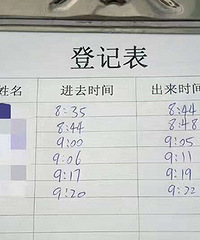 登记表
姓名 进去时间 出来时间
8:35 8:44
8:44 8:48
9:00 9:05
9:06 9:11
9:17 9:19
9:20 9:22